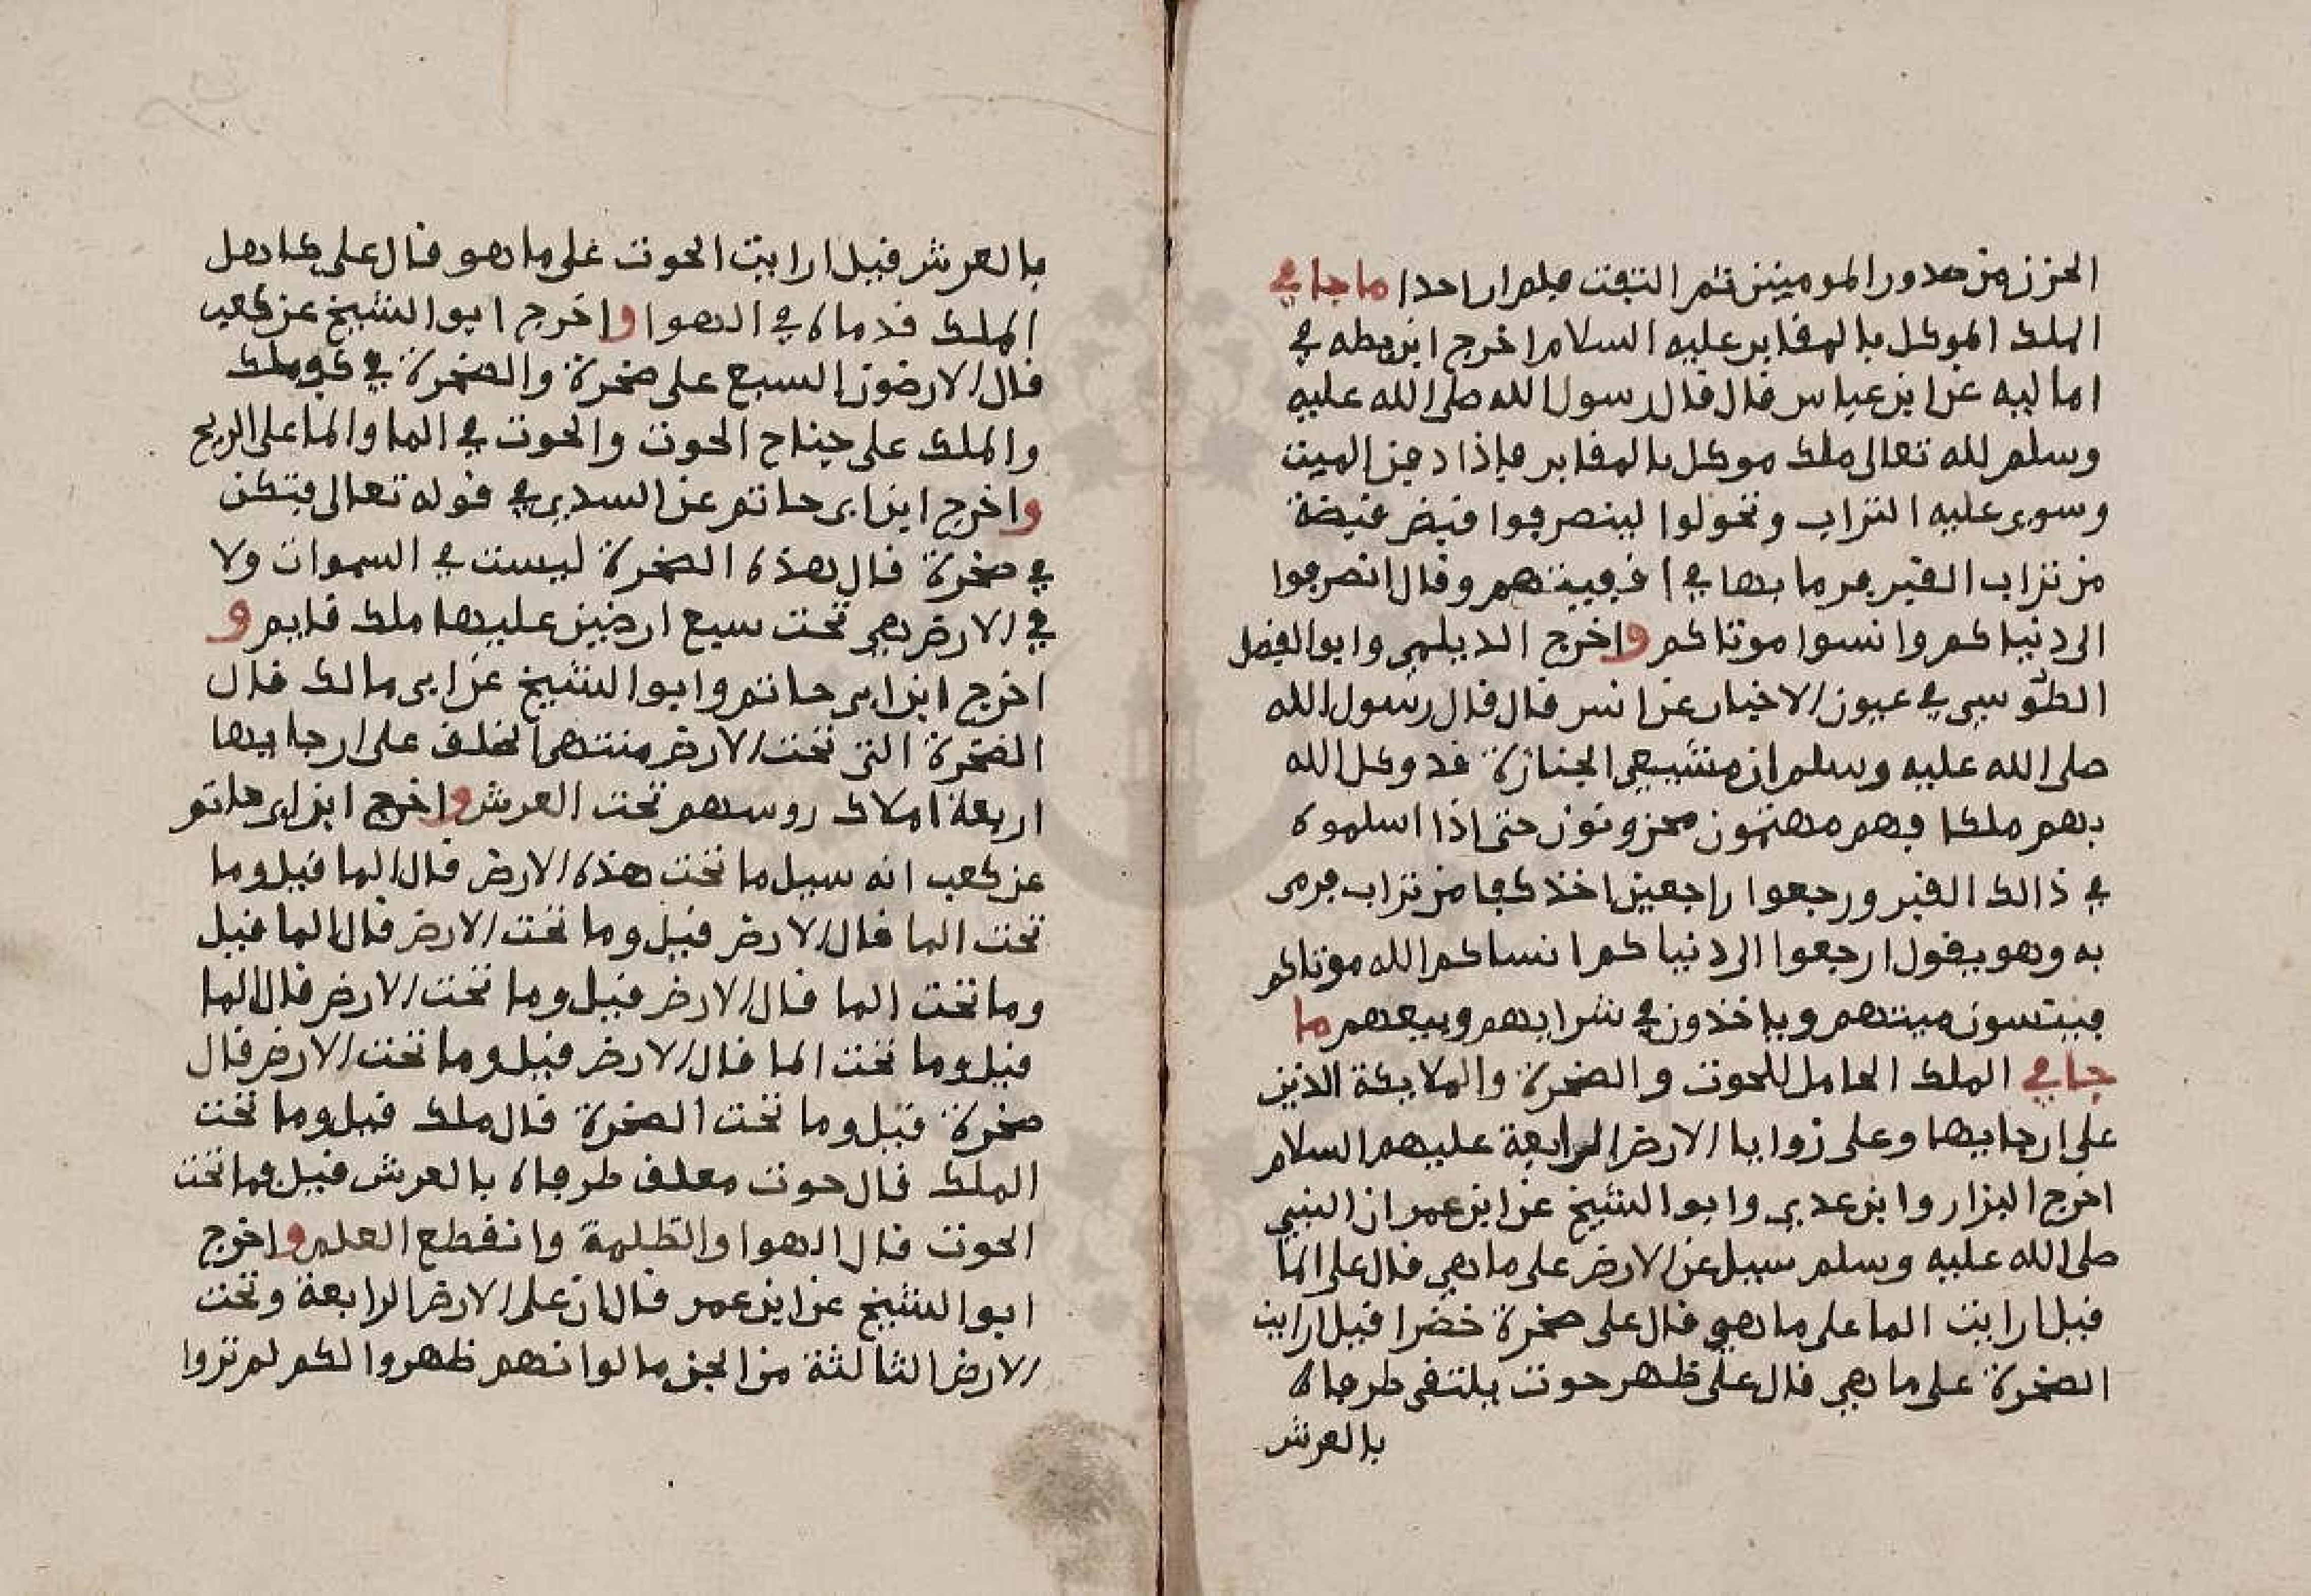 الحزن من صدور المومنين ثم التفت فلم ار احدا ما جا في
الملك الموكل بالمقابر عليه السلام اخرج ابن بطه في
اماليه عن ابن عباس قال قال رسول الله صلى الله عليه
وسلم لله تعالى ملك موكل بالمقابر فاذا دفن الميت
وسوى عليه التراب وتحولوا لينصرفوا قبض قبضة
من تراب القبر فرما بها في اقفيتهم وقال انصرفوا
الى دنياكم وانسوا موتاكم واخرج الديلمي وابو الفضل
الطوسي في عيون الاخبار عن انس قال قال رسول الله
صلى الله عليه وسلم ان مشيعي الجنازة قد وكل الله
بهم ملكا فهم مهتمون محزونون حتى اذا اسلموه
في ذالك القبر ورجعوا راجعين اخذ كفا من تراب فرمى
به وهو يقول ارجعوا الى دنياكم انساكم الله موتاكم
فينسون ميتهم وياخذون في شرايهم وبيعهم ما
جا في الملك الحامل للحوت والصخرة والملايكة الذين
على ارجايها وعلى زوايا الارض الرابعة عليهم السلام
اخرج البزار وابن عدي وابو الشيخ عن ابن عمر ان النبي
صلى الله عليه وسلم سيل عن الارض على ما هي قال على الما
قيل ارايت الما على ما هو قال على صخرة خضرا قيل ارايت
الصخرة على ما هي قال على ظهر حوت يلتقى طرفاه
بالعرش
بالعرش قيل ارايت الحوت على ما هو قال على كاهل
الملك قدماه في الهوا واخرج ابو الشيخ عن كعب
قال الارضون السبع على صخرة والصخرة في كف ملك
والملك على جناح الحوت والحوت في الما والما على الريح
واخرج ابن ابى حاتم عن السدي في قوله تعالى فتكن
في صخرة قال هذه الصخرة ليست في السموات ولا
في الارض هي تحت سبع ارضين عليها ملك قايم و
اخرج ابن ابى حاتم وابو الشيخ عن ابى مالك قال
الصخرة التي تحت الارض منتهى الخلق على ارجايها
اربعة املاك روسهم تحت العرش واخرج ابن ابى حاتم
عن كعب انه سيل ما تحت هذه الارض قال الما قيل وما
تحت الما قال الارض قيل وما تحت الارض قال الما قيل
وما تحت الما قال الارض قيل وما تحت الارض قال الما
قيل وما تحت الما قال الارض قيل وما تحت الارض قال
صخرة قيل وما تحت الصخرة قال ملك قيل وما تحت
الملك قال حوت معلق طرفاه بالعرش قيل فما تحت
الحوت قال الهوا والظلمة وانقطع العلم واخرج
ابو الشيخ عن ابن عمر قال ان على الارض الرابعة وتحت
الارض الثالثة من الجن ما لو انهم ظهروا لكم لم تروا